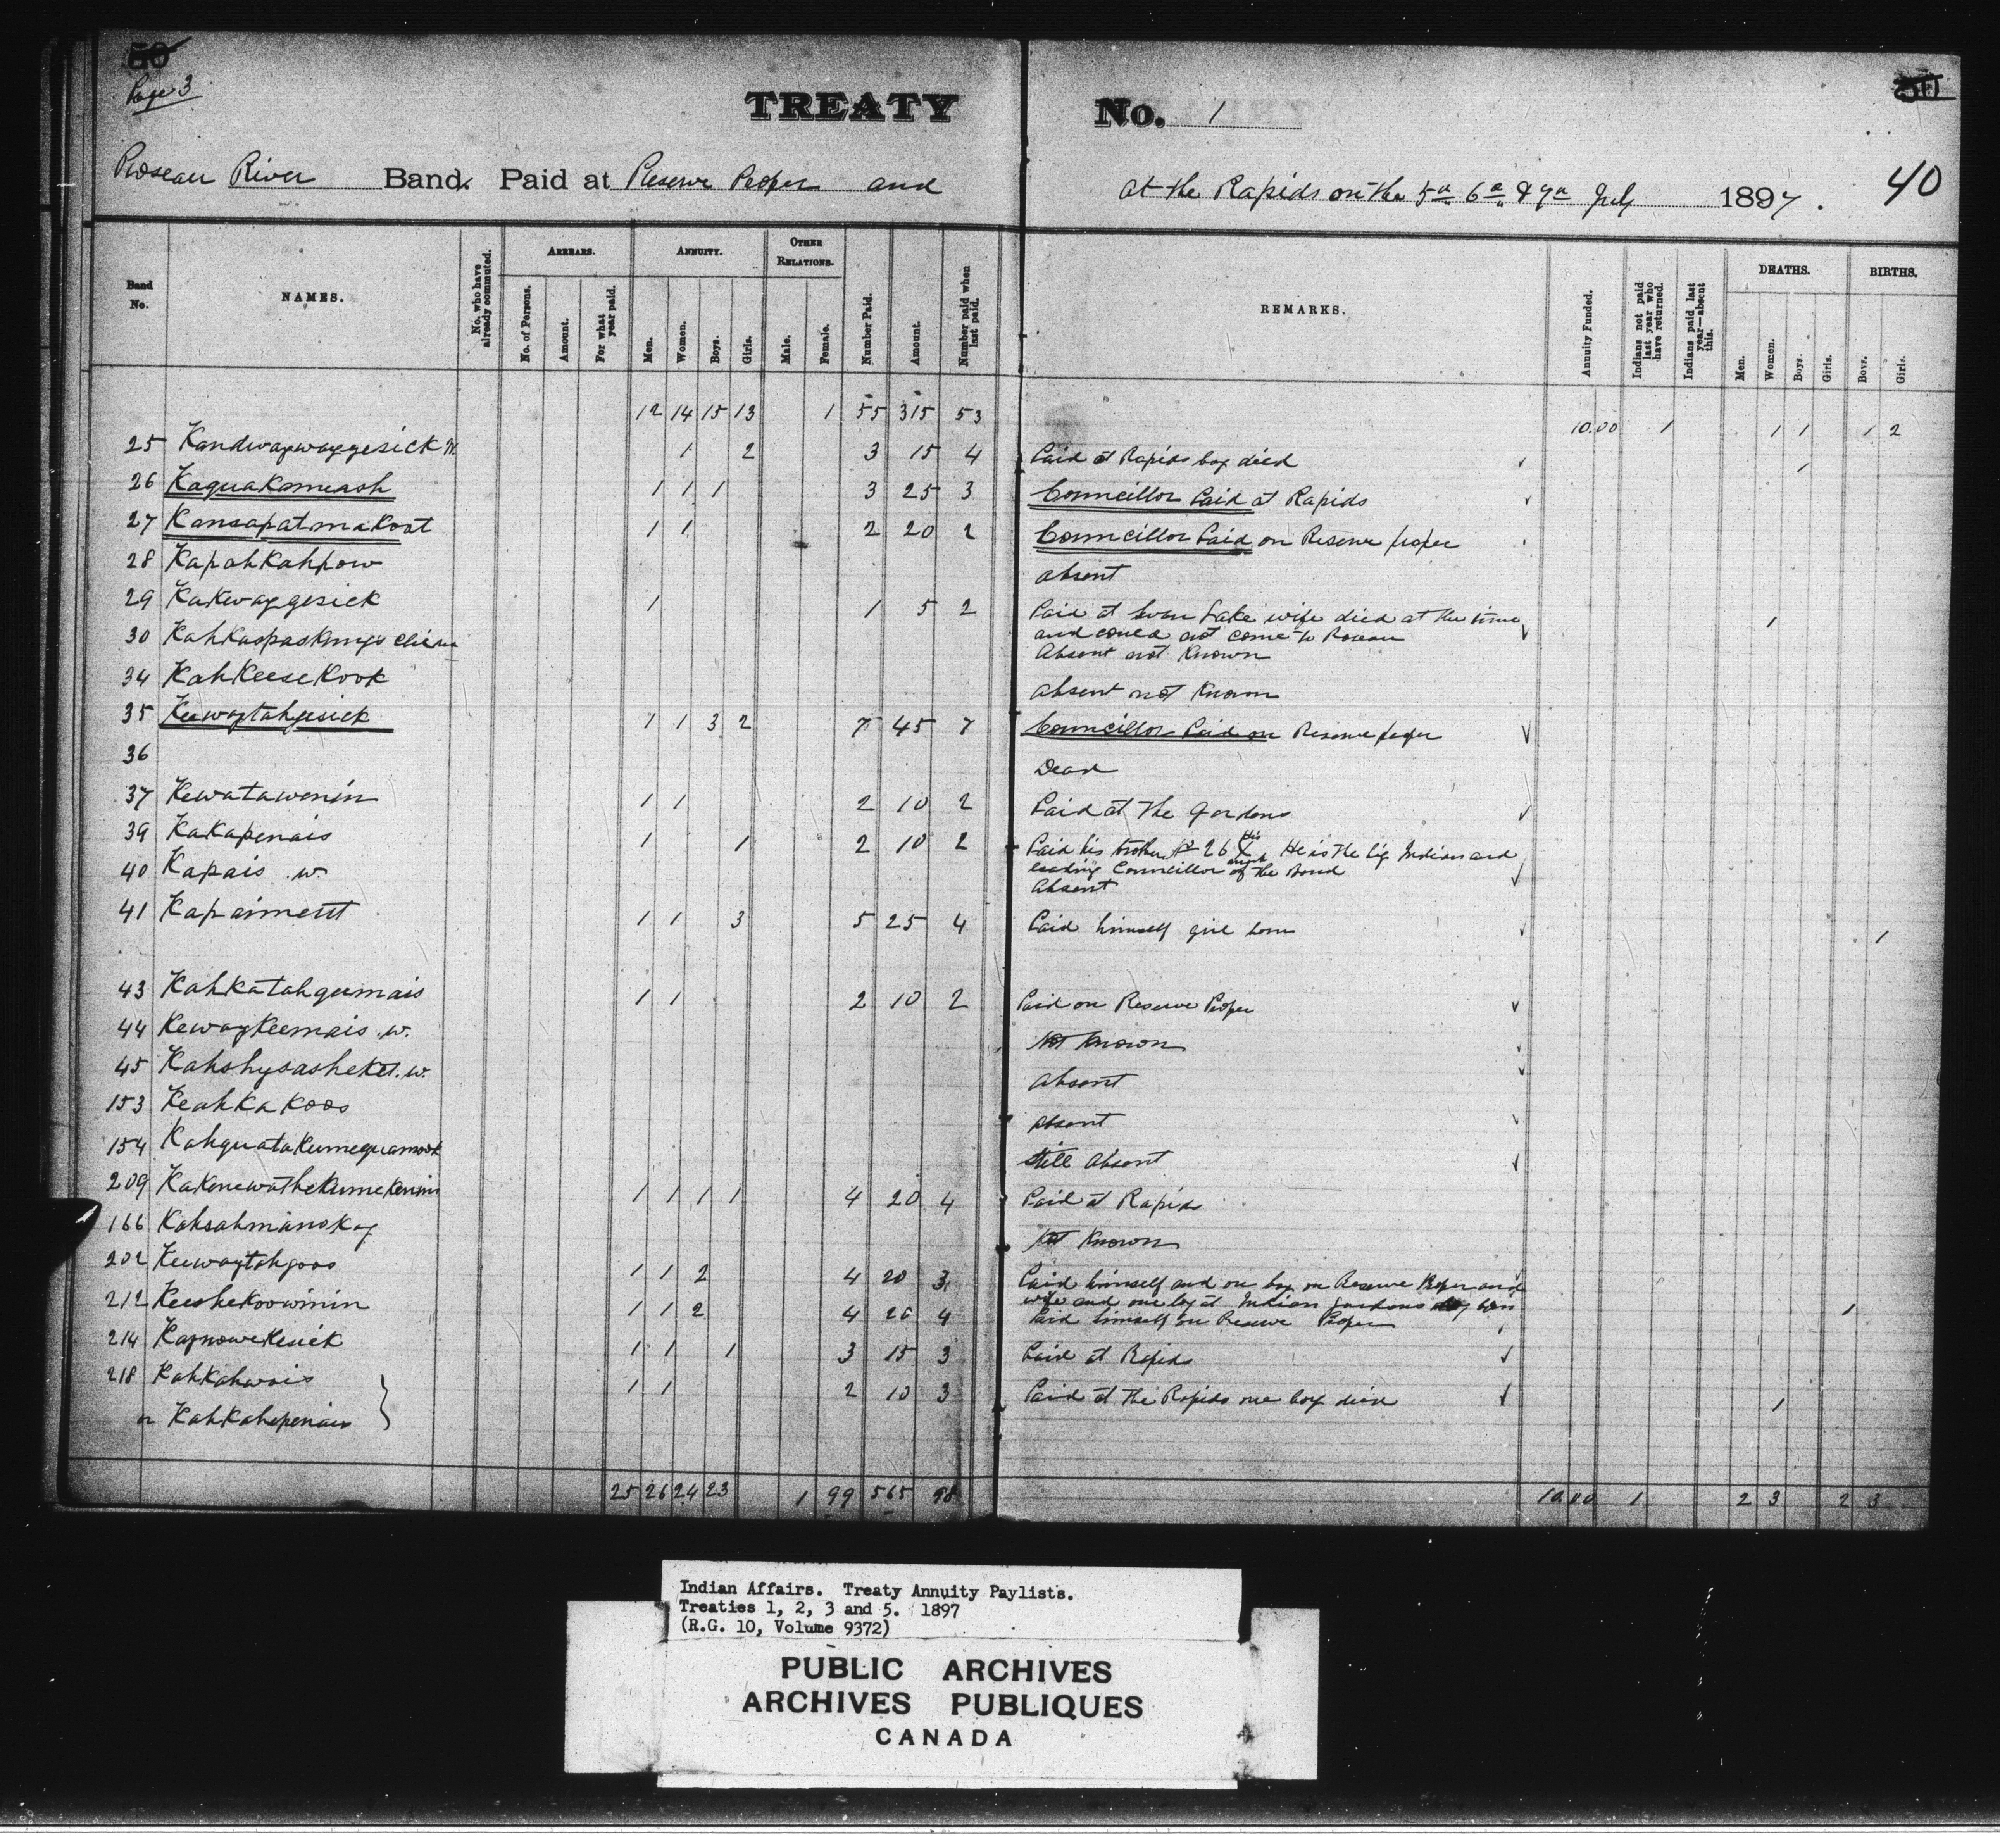 50
Page 3
TREATY No. 1
Roseau River Band. Paid at Reserve Proper and at the Rapids on the 5th 6th & 7th July 1897.
40
Band No. NAMES. No. who have already commuted. ARREARS. No. of Persons. Amount. For what year paid. ANNUITY. Men. Women. Boys. Girls. OTHER RELATIONS. Male. Female. Number Paid. Amount. Number paid when last paid. REMARKS. Annuity Funded. Indians not paid last year who have returned. Indians paid last year—absent this. DEATHS. Men. Women. Boys. Girls. BIRTHS. Boys. Girls.
12 14 15 13 1 55 315 53 10.00 1 1 1 1 2
25 Kandwaywaygesick W. 1 2 3 15 4 Paid at Rapids boy died 1
26 Kaquakomeash 1 1 1 3 25 3 Councillor Paid at Rapids
27 Kansapatmakoot 1 1 2 20 2 Councillor Paid on Reserve proper
28 Kapahkahpow absent
29 Kakwaygesick 1 1 5 2 Paid at Swan Lake wife died at the time 1
and could not come to Roseau
30 Kahkaspaskungs Absent not Known
34 Kahkeesekook absent not Known
35 Keewaytahgesick 1 1 3 2 7 45 7 Councillor Paid on Reserve proper
36 Dead
37 Kewatawenin 1 1 2 10 2 Paid at the Gardens
39 Kakapenais 1 1 2 10 2 Paid his brother No 26 He is the big Indian and
leading Councillor of the Band
40 Kapais .w. Absent
41 Kapaimestt 1 1 3 5 25 4 Paid himself girl born 1
43 Kahkatahgumais 1 1 2 10 2 Paid on Reserve Proper
44 Kewaykeemais .w. Not Known
45 Kahshysasheket .w. absent
153 Keahkakoos absent
154 Kahquatakumequamook still absent
209 Kakenewathekumekenim 1 1 1 1 4 20 4 Paid at Rapids
166 Kahsahmanokay Not Known
202 Keewaytahgoos 1 1 2 4 20 3 Paid himself and one boy on Reserve Proper and
wife and one boy at Indian gardens boy born 1
212 Keeshekoowinin 1 1 2 4 20 4 Paid himself on Reserve Proper
214 Kaynowekesick 1 1 1 3 15 3 Paid at Rapids
218 Kahkahwais 1 1 2 10 3 Paid at the Rapids one boy died 1
or Kahkahepenais
25 26 24 23 1 99 565 98 10.00 1 2 3 2 3
Indian Affairs. Treaty Annuity Paylists.
Treaties 1, 2, 3 and 5. 1897
(R.G. 10, Volume 9372)
PUBLIC ARCHIVES
ARCHIVES PUBLIQUES
CANADA